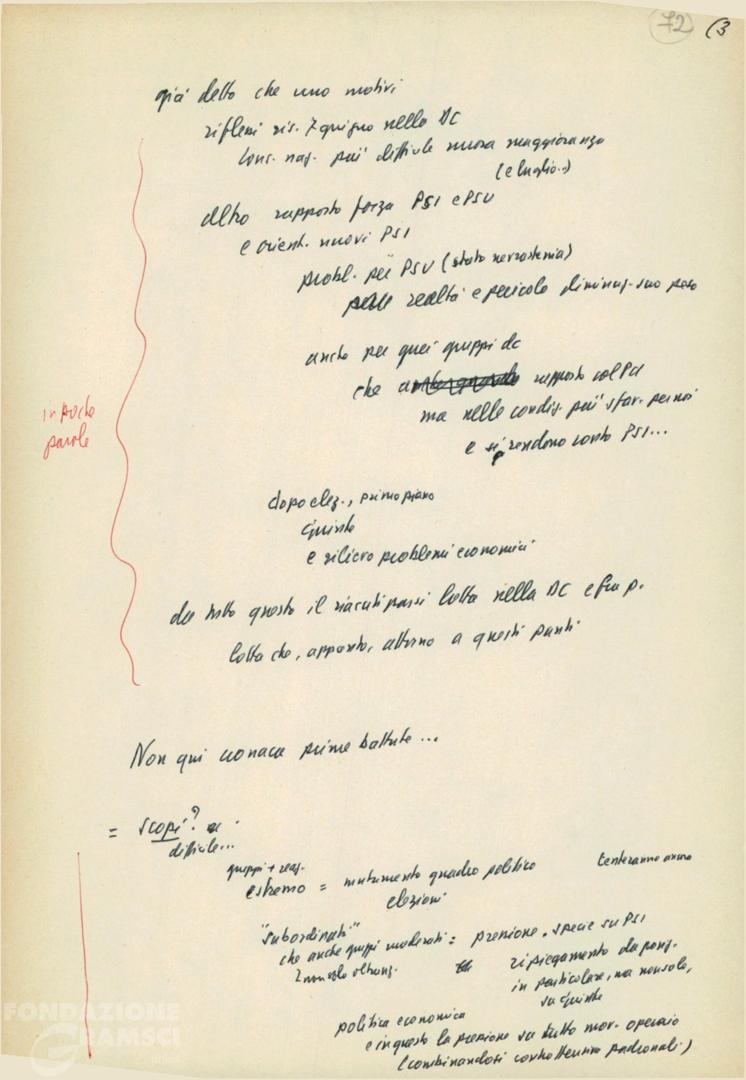 72 (3
già detto che uno motivi
riflessi ris. 7 giugno nella DC
Cons. naz. più difficile nuova maggioranza
(e luglio..)
altro rapporto forza PSI e PSU
e orient. nuovi PSI
probl. per PSU (stato nevrastenia)
realtà e pericolo eliminaz. suo peso
anche per quei gruppi dc
che rapporto col PCI
ma nelle condiz. più sfav. per noi
e si rendono conto PSI...
in poche
parole
dopo elez., primo piano
giunte
e rilievo problemi economici
da tutto questo il riacutizzarsi lotta nella DC e fra p.
lotta che, appunto, attorno a questi punti
Non qui cronaca prime battute...
= scopi?
difficile...
gruppi + reaz.
estremo = mutamento quadro politico tenteranno ancora
elezioni
"subordinati"
che anche gruppi moderati = pressione, specie su PSI
ripiegamento da posiz.
in particolare, ma non solo,
su giunte
politica economica
e in questo la pressione su tutto mov. operaio
(combinandosi controffensiva padronali)
FONDAZIONE
GRAMSCI